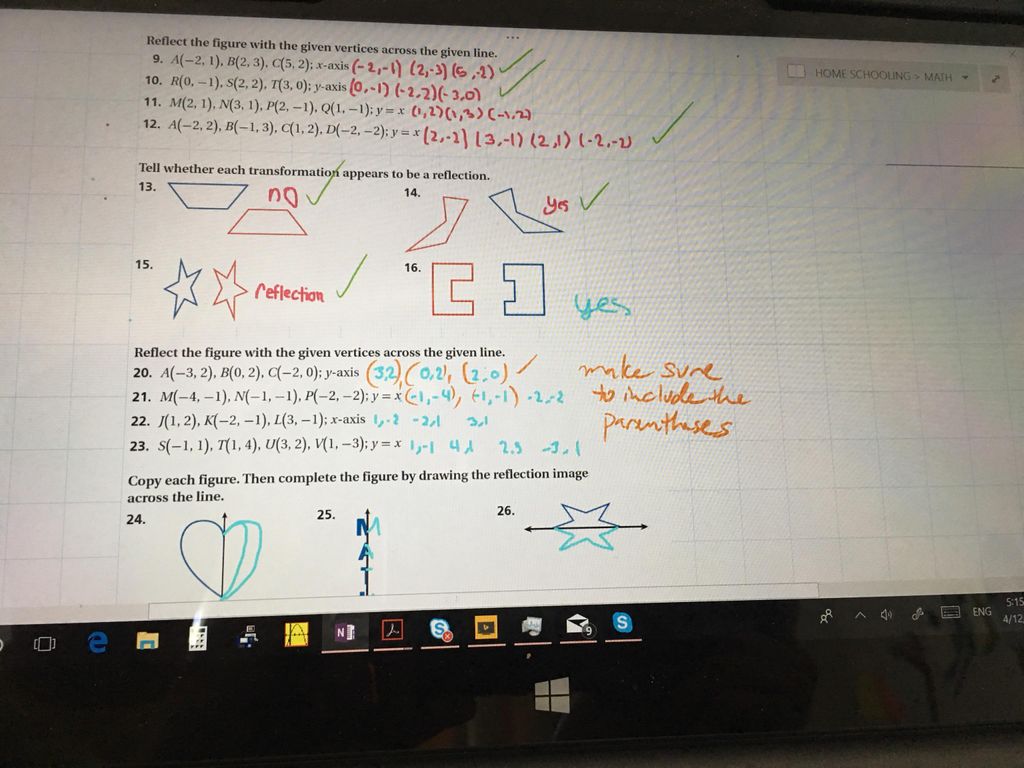 Reflect the figure with the given vertices across the given line.
HOME SCHOOLING > MATH
9. A(−2, 1), B(2, 3), C(5, 2); x-axis (-2,-1) (2,-3) (5,-2)
10. R(0, −1), S(2, 2), T(3, 0); y-axis (0,-1) (-2,2) (-3,0)
11. M(2, 1), N(3, 1), P(2, −1), Q(1, −1); y = x (1,2) (1,3) (-1,2)
12. A(−2, 2), B(−1, 3), C(1, 2), D(−2, −2); y = x (2,-2) (3,-1) (2,1) (-2,-2)
Tell whether each transformation appears to be a reflection.
13. no
14. yes
15. reflection
16. yes
Reflect the figure with the given vertices across the given line.
20. A(−3, 2), B(0, 2), C(−2, 0); y-axis (3,2), (0,2), (2,0)
21. M(−4, −1), N(−1, −1), P(−2, −2); y = x (-1,-4), (-1,-1) -2,-2
22. J(1, 2), K(−2, −1), L(3, −1); x-axis 1,-2 -2,1 3,1
23. S(−1, 1), T(1, 4), U(3, 2), V(1, −3); y = x 1,-1 4,1 2,3 -3,1
make sure
to include the
parentheses
Copy each figure. Then complete the figure by drawing the reflection image
across the line.
24.
25.
26.
M
A
T
N
9
S
ENG
5:15
4/12